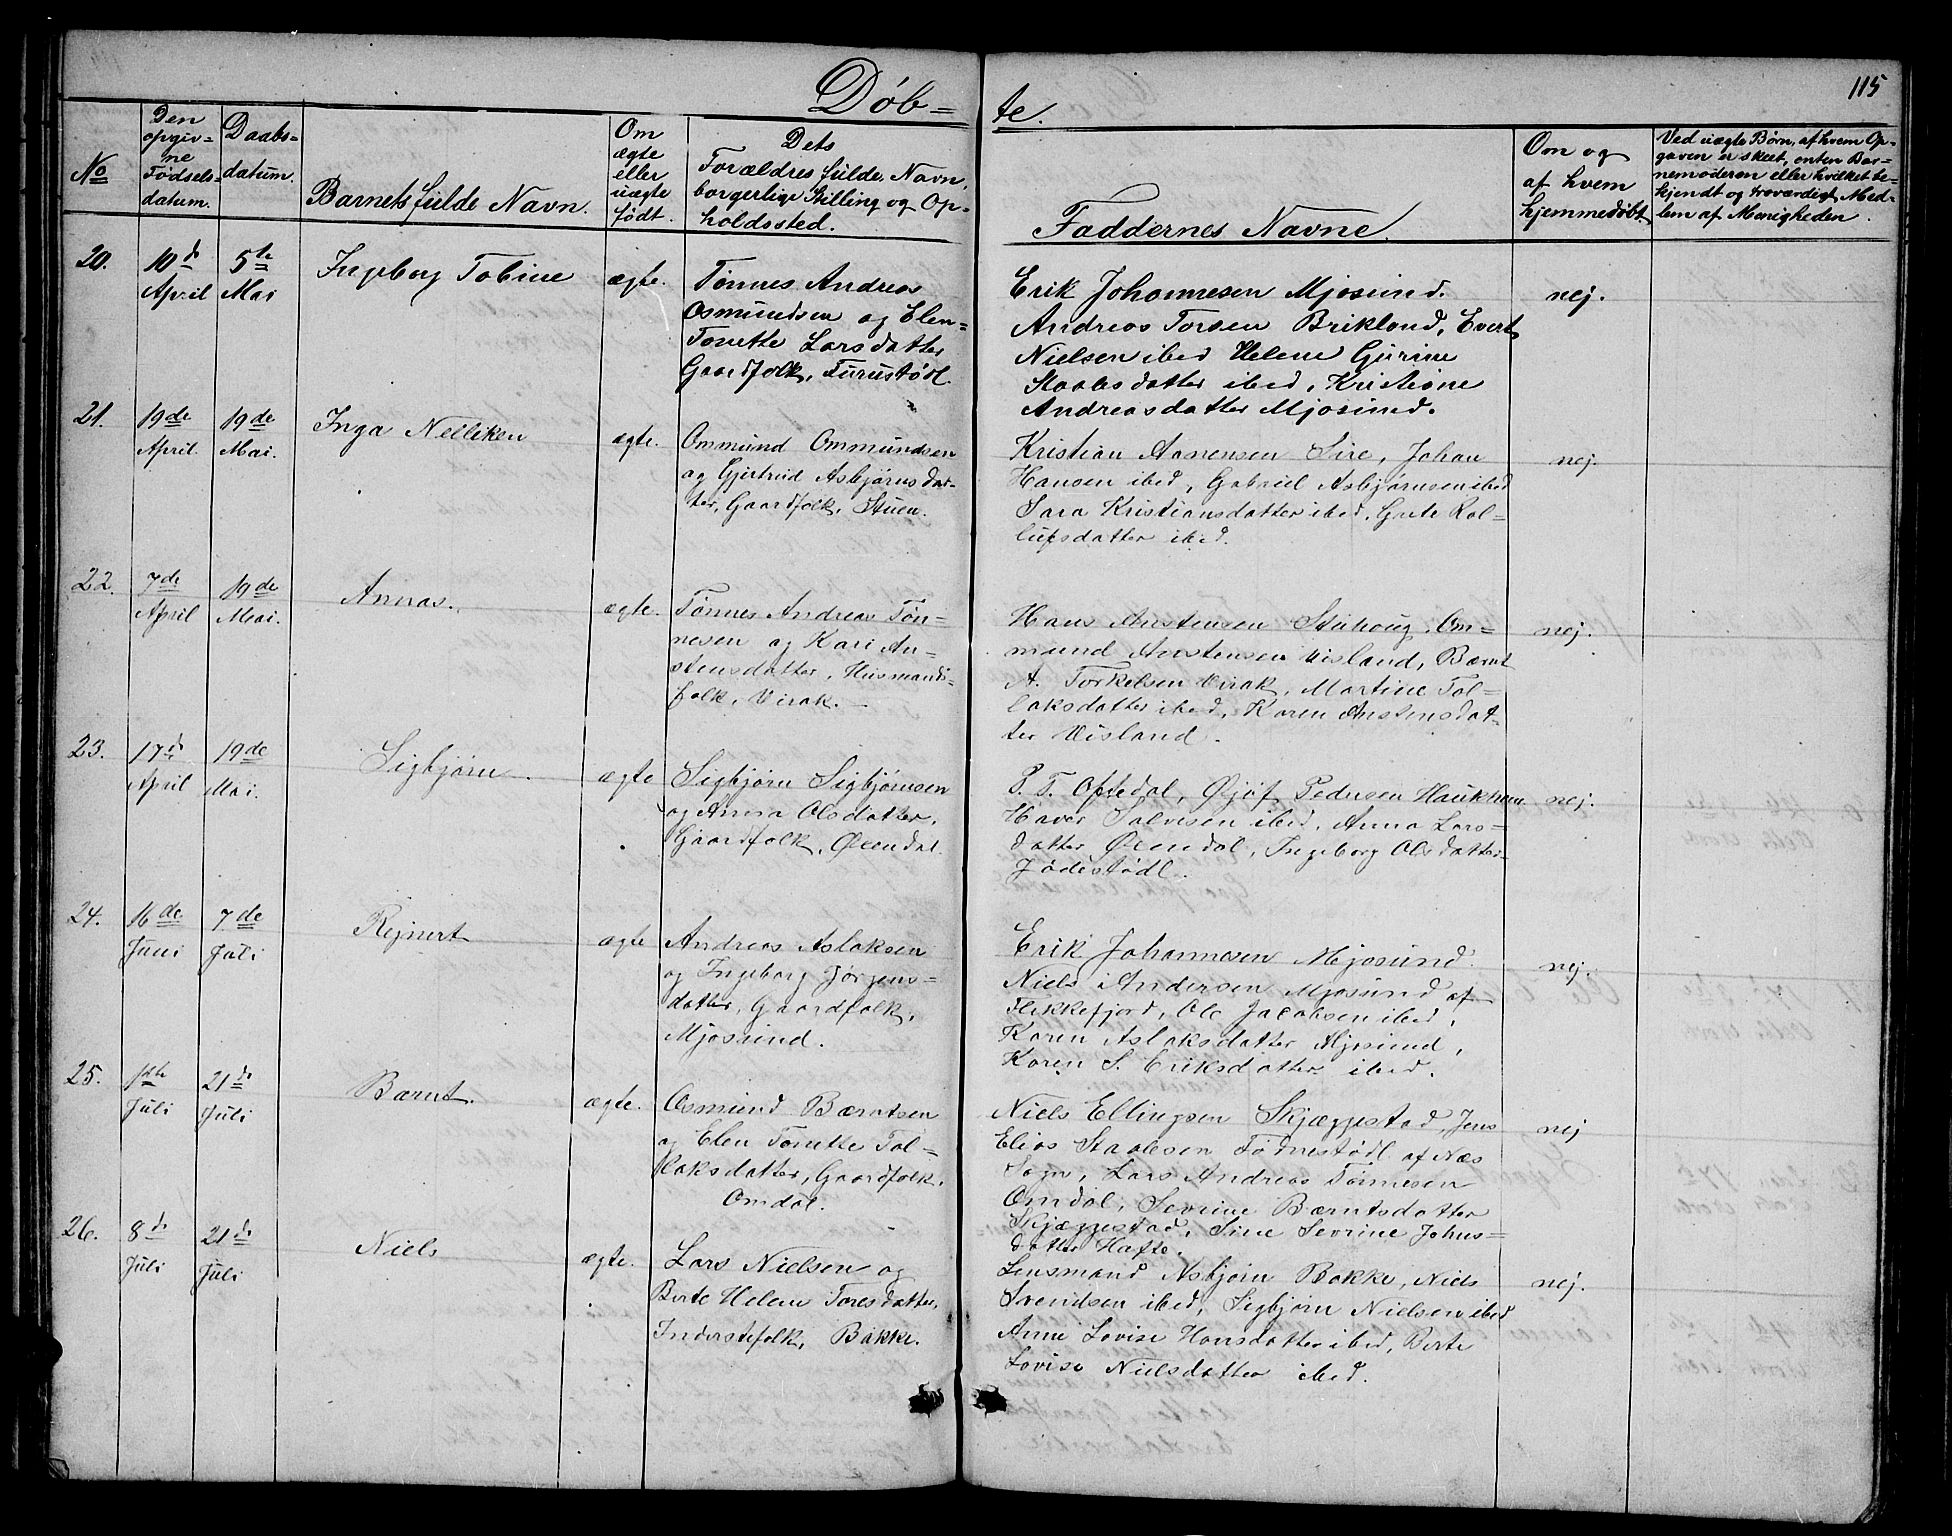 115
Døb= te.
No
Den opgiv= ne Fødsels= datum.
Daabs= datum.
Barnets fulde Navn.
Om ægte eller uægte født.
Dets Forældres fulde Navn, borgerlige Stilling og Op= holdssted.
Faddernes Navne.
Om og af hvem hjemmedøbt
Ved uægte Børn, af hvem Op= gaven er skeet, enten Bar= nemoderen eller hvilket be= kjendt og troværdigt Med= lem af Menigheden.
20.
10d April
5te Mai
Ingeborg Tobine
ægte.
Tønnes Andreas
Osmundsen og Elen=
Tonette Larsdatter
Gaardfolk, Furustødl.
Erik Johannesen Mjosund.
Andreas Torsen Brikland, Evert
Nielsen ibed Helene Gurine
Staalesdatter ibed, Kristiane
Andreasdatter Mjosund.
nej.
21.
19de April.
19de Mai.
Inga Nelliken
ægte.
Ommund Ommundsen
og Gjertrud Asbjørnsdat=
ter, Gaardfolk, Stuen.
Kristian Aanensen Sire, Johan
Hansen ibed, Gabriel Asbjørnsen ibed
Sara Kristiansdatter ibed, Grete Rol=
lupsdatter ibed.
nej.
22.
7de April
19de Mai.
Annas.
ægte.
Tønnes Andreas Tøn=
nesen og Kari An=
stensdatter, Husmands=
folk, Virak.
Hans Anstensen Stuhoug, Om=
mund Anstensen Visland, Bærnt
A. Torkelsen Virak, Martine Tol=
laksdatter ibed, Karen Anstensdat=
ter Visland.
nej.
23.
17d April
19de Mai.
Sigbjørn.
ægte
Sigbjørn Sigbjørnsen
og Anna Olsdatter,
Gaardfolk, Øiendal.
P. T. Oftedal, Øjof Pedersen Haukhom
Haver Salvesen ibed, Anna Lars=
datter Øiendal, Ingeborg Olsdatter
Jødestødl.
nej.
24.
16de Juni
7de Juli
Rejnert
ægte
Andreas Aslaksen
og Ingeborg Jørgens=
datter, Gaardfolk,
Mjosund.
Erik Johannesen Mjosund
Niels Andersen Mjosund af
Flikkefjord, Ole Jacobsen ibed,
Karen Aslaksdatter Mjosund,
Karen S. Eriksdatter ibed.
nej.
25.
1ste Juli
21d Juli
Bærnt.
ægte.
Osmund Bærntsen
og Elen Tonette Tol=
laksdatter, Gaardfolk,
Omdal.
Niels Ellingsen Skjæggestad, Jens
Elias Staalesen Fødnestødl af Næs
Sogn, Lars Andreas Tønnesen
Omdal, Sevrine Bærntsdatter
Skjæggestad, Sine Sevrine Johns=
datter Hafte.
nej
26.
8d Juli
21d Juli
Niels
ægte.
Lars Nielsen og
Berte Helene Toresdatter,
Inderstefolk, Bakke.
Lensmand Asbjørn Bakke, Niels
Svendsen ibed, Sigbjørn Nielsen ibed
Anne Lovise Hansdatter ibed, Berte
Lovise Nielsdatter ibed.
nej.